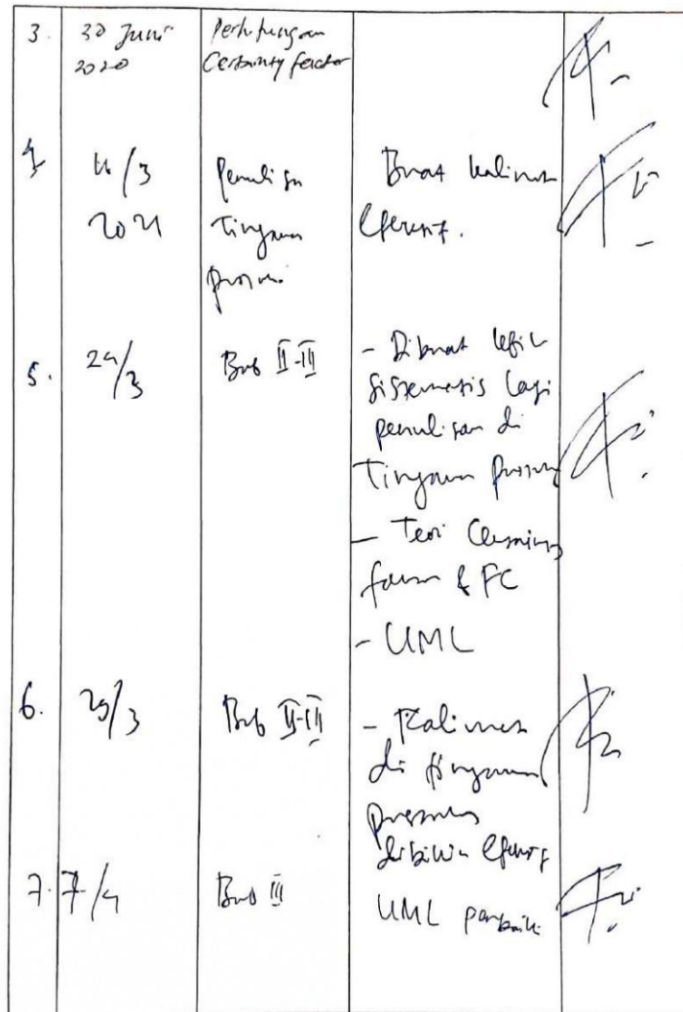 3. 30 Juni Perhitungan
2020 Certainty factor
4 4/3 penulisan Buat kalimat
2021 Tinjauan efektif.
pustaka
5. 24/3 Bab II-III - Dibuat lebih
sistematis lagi
penulisan di
Tinjauan pustaka
- Teori Certainty
factor & FC
- UML
6. 29/3 Bab II-III - Kalimat
di tinjauan
pustaka
dibikin efektif
7. 7/4 Bab III UML perbaiki